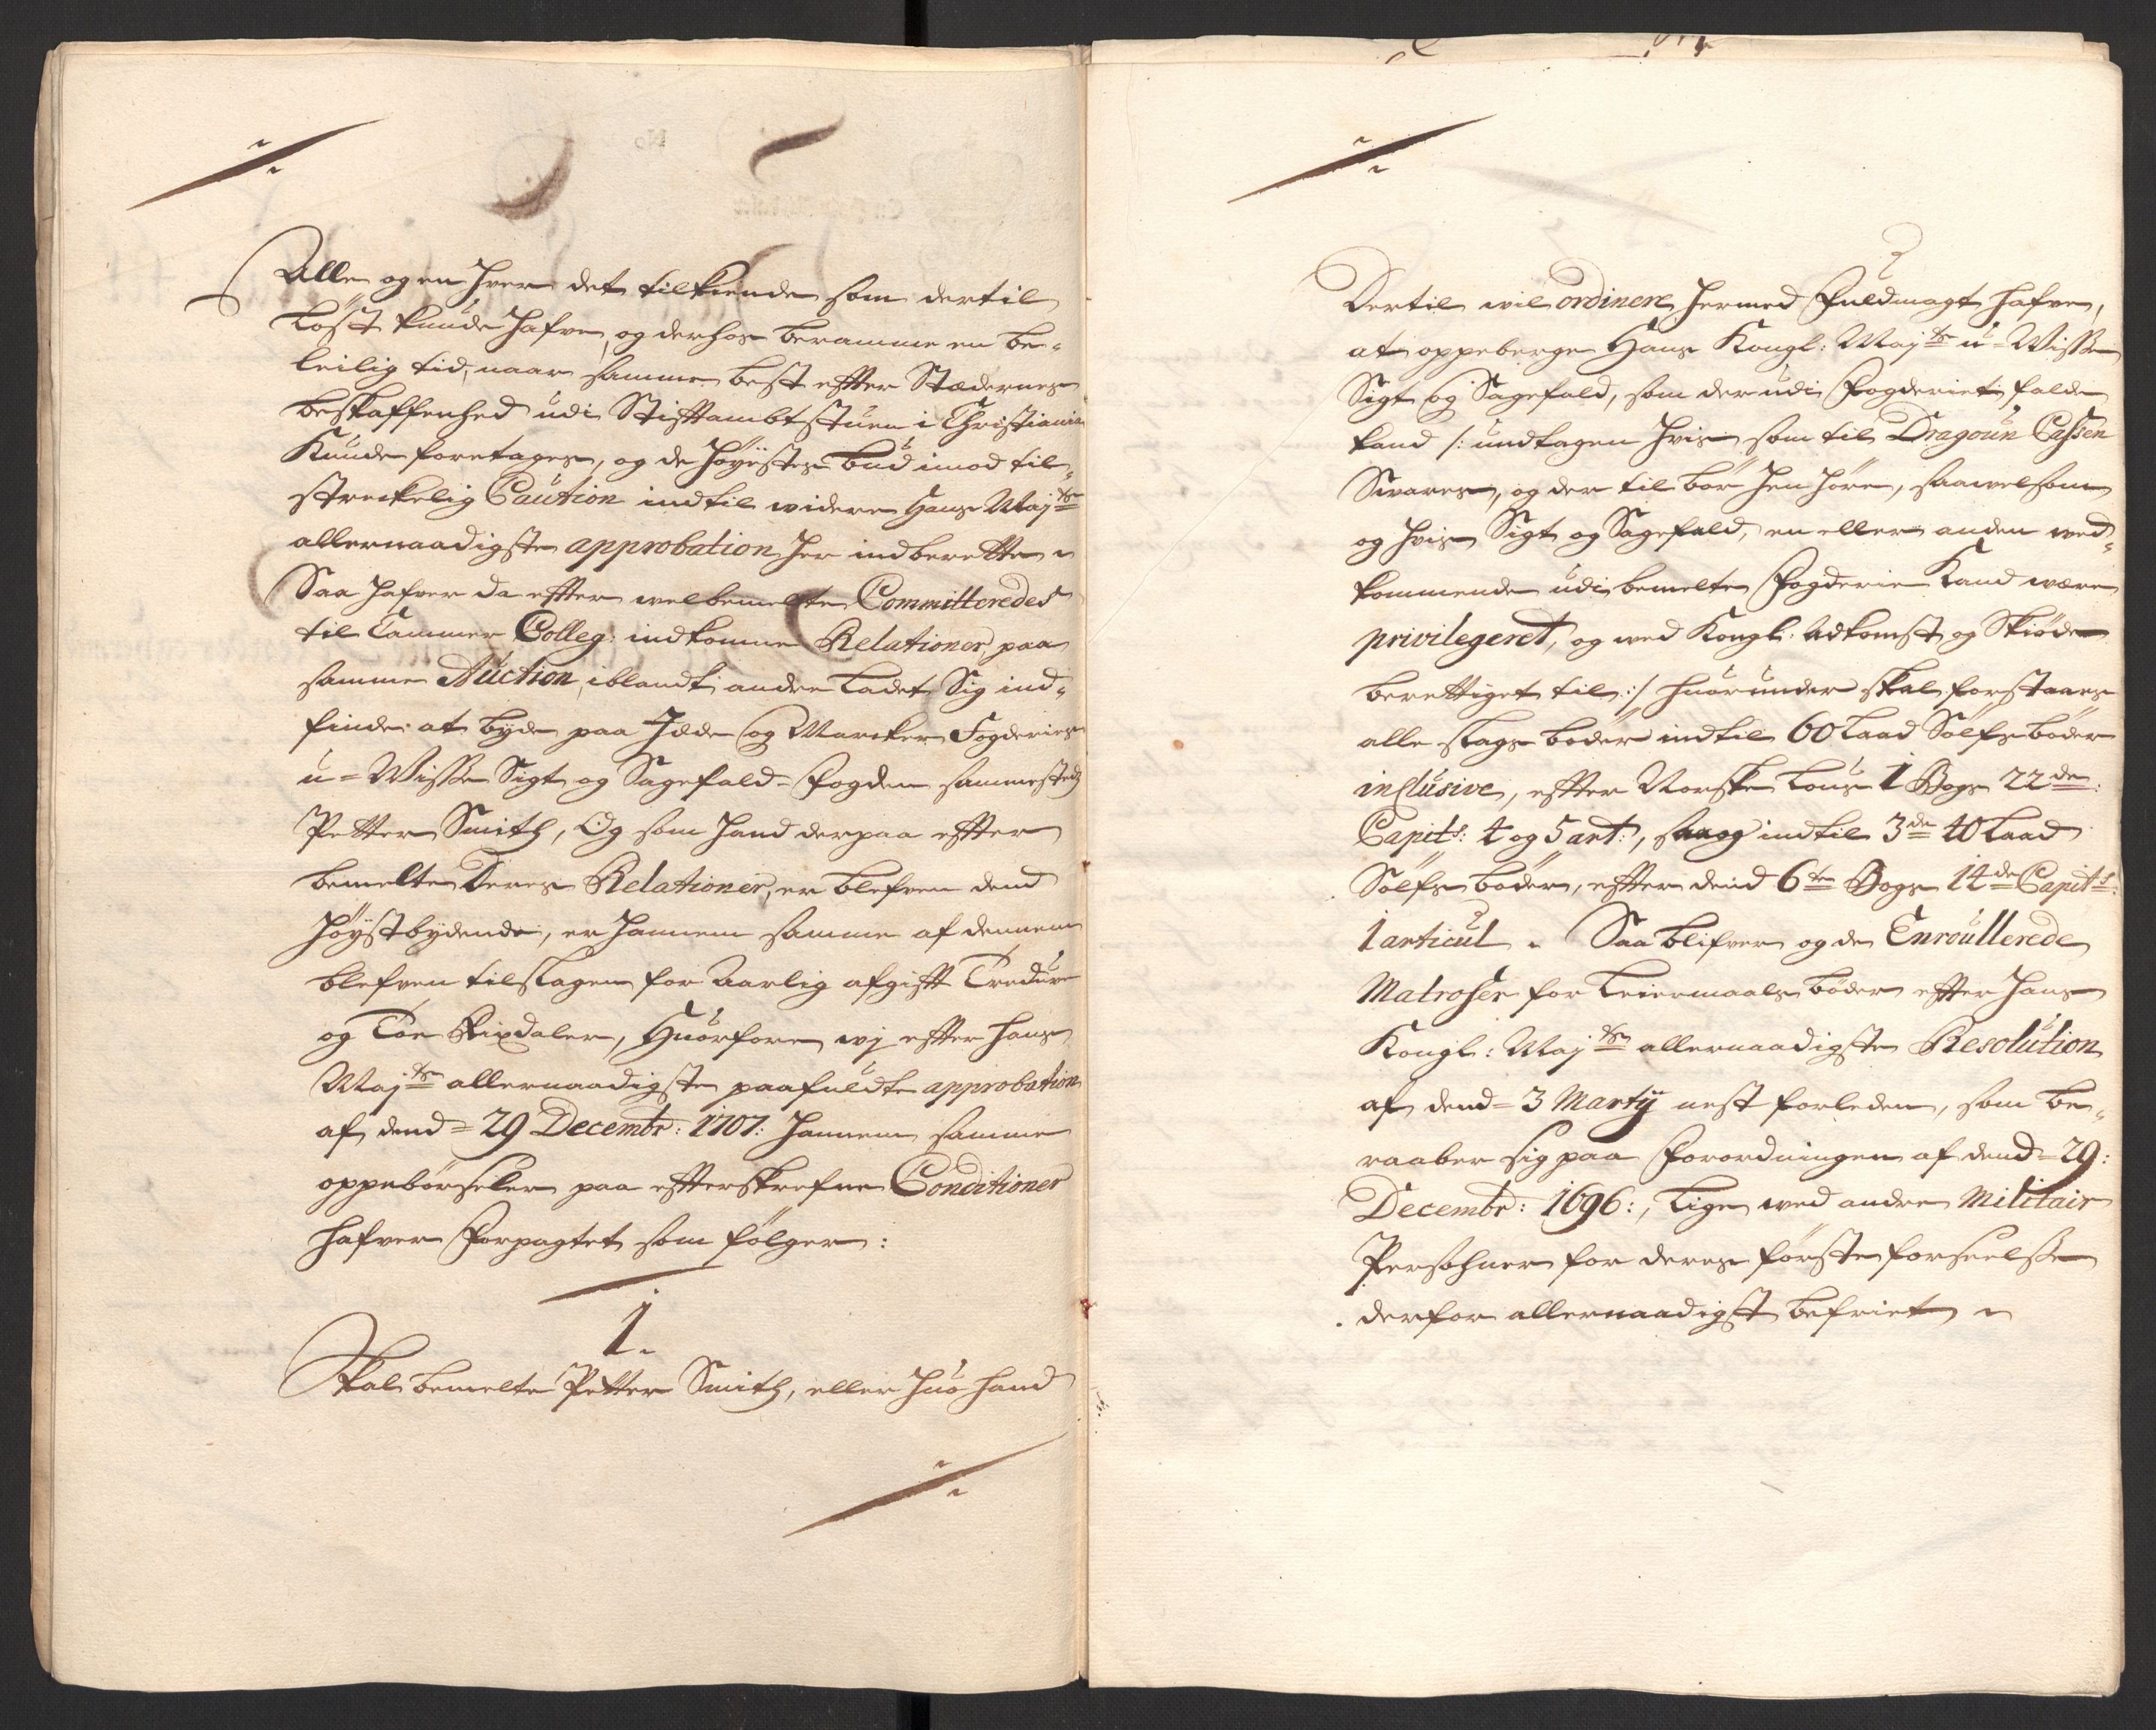 Alle og en hver det tilkiende som dertil
löst kunde hafve, og derhos beramme en be-
leilig tid, naar samme best effter Stædernes
beskaffenhed udi Stifftambtstuen i Christiania
Kunde foretages, og de höyeste bud imod til-
streckelig Caution indtil videre Hans Maj:ts
allernaadigste approbation her indberette
Saa hafver da effter velbemelte Committeredes
til Cammer Colleg: indkomne Relationer, paa
samme Auction, iblandt andre ladet Sig ind-
finde at byde paa Idde og Marcker Fogderies
u-Wisse Sigt og Sagefald- Fogden sammesteds
Petter Smith, Og som hand derpaa effter
bemelte Deres Relationer, er blefven dend
höystbydende, er hannem samme af dennem
blefven tilslagen for Aarlig afgifft Tredive
og Toe Rixdaler, Huorfore wj effter hans
Maj:ts allernaadigste paafuldte approbation
af dend- 29 Decembr: 1707: hannem samme
oppebörseler paa effterskrefne Conditioner
hafver Forpagtet som fölger:
1.
Skal bemelte Petter Smith, eller huo hand
Dertil vil ordinere hermed Fuldmagt hafve,
at oppeberge Hans Kongl: Maj:ts u-Wisse
Sigt og Sagefald, som der udi Fogderiet falde
kand /: undtagen hvis som til Dragoun Cassen
Svares, og der til bör hen höre, saavelsom
og hvis Sigt og Sagefald, en eller anden ved-
kommende udi bemelte Fogderie Kand være
privilegeret, og med Kongl: Adkomst og Skiöde
berettiget til :/ huorunder skal forstaaes
alle slags böder indtil 60 Laad Sölfs böder
inclusive, effter Norske Lous 1 Bogs 22de:
Capitl: 4 og 5 art:, saa og indtil 3de 40 Laad
Sölfs böder, effter dend 6te Bogs 14de Capitl:
1 articul. Saa blifver og de Enroullerede
Matroser for Leiermaals böder effter hans
Kongl: Maj:ts allernaadigste Resolution
af dend- 3 Martij nest forleden, som be-
raaber sig paa Forordningen af dend- 29:
Decembr: 1696:, lige ved andre Militair
Persohner for deres förste forseelse
derfor allernaadigst befriet